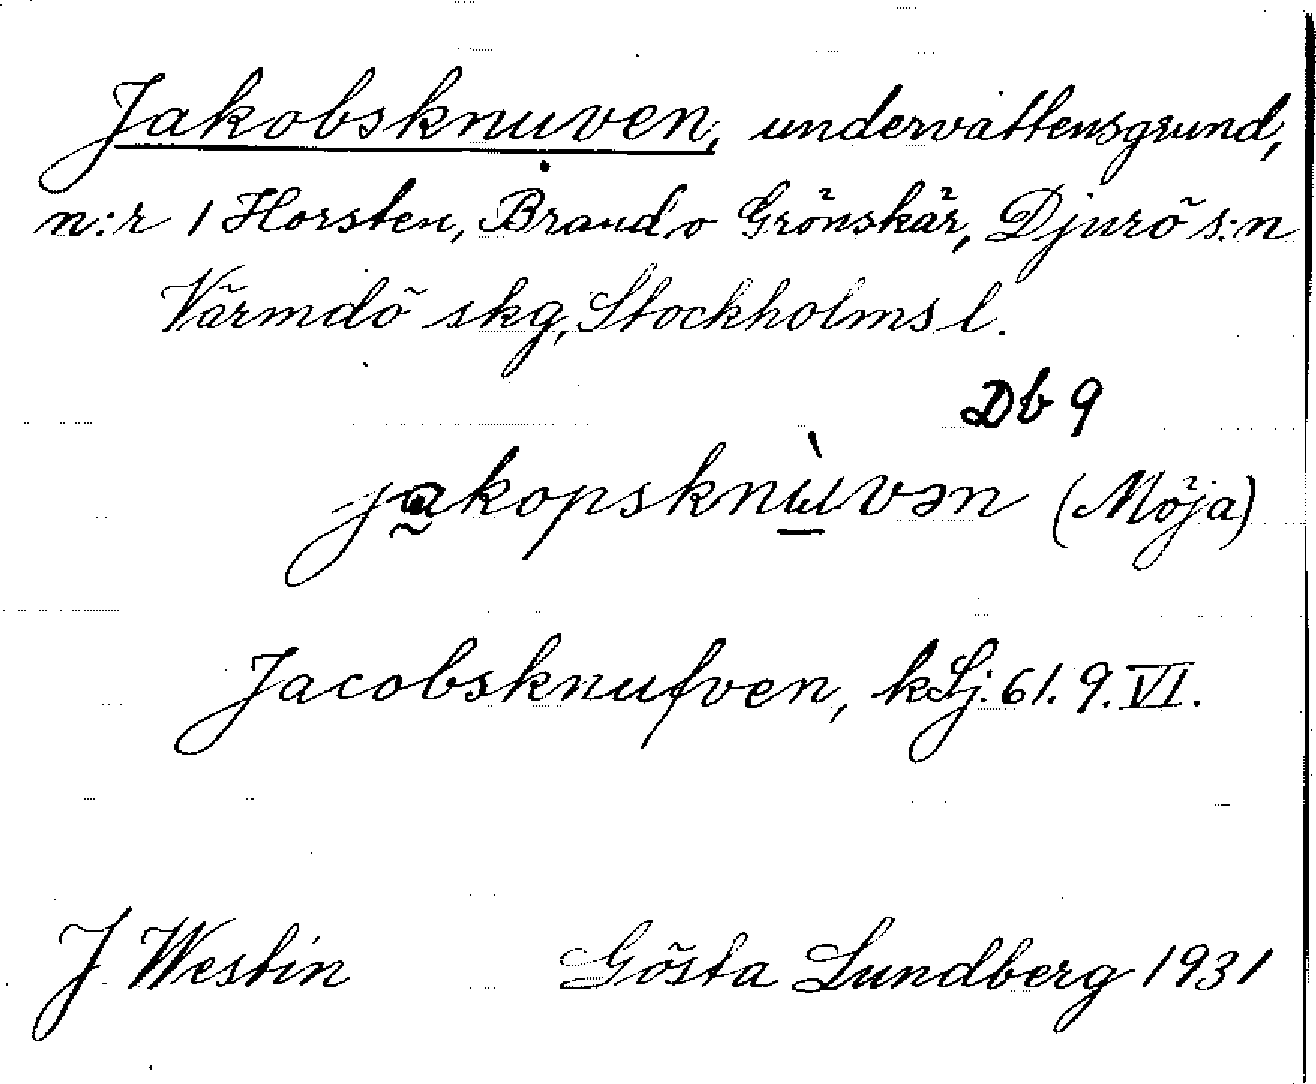 Jakobsknuven, undervattensgrund,
n:r 1 Horsten, Brand o Grönskär, Djurö s:n
Värmdö skg, Stockholms l.
Db 9
jakopsknùvən (Möja)
Jacobsknufven, kLj. 61. 9. VI.
J. Westin Gösta Lundberg 1931